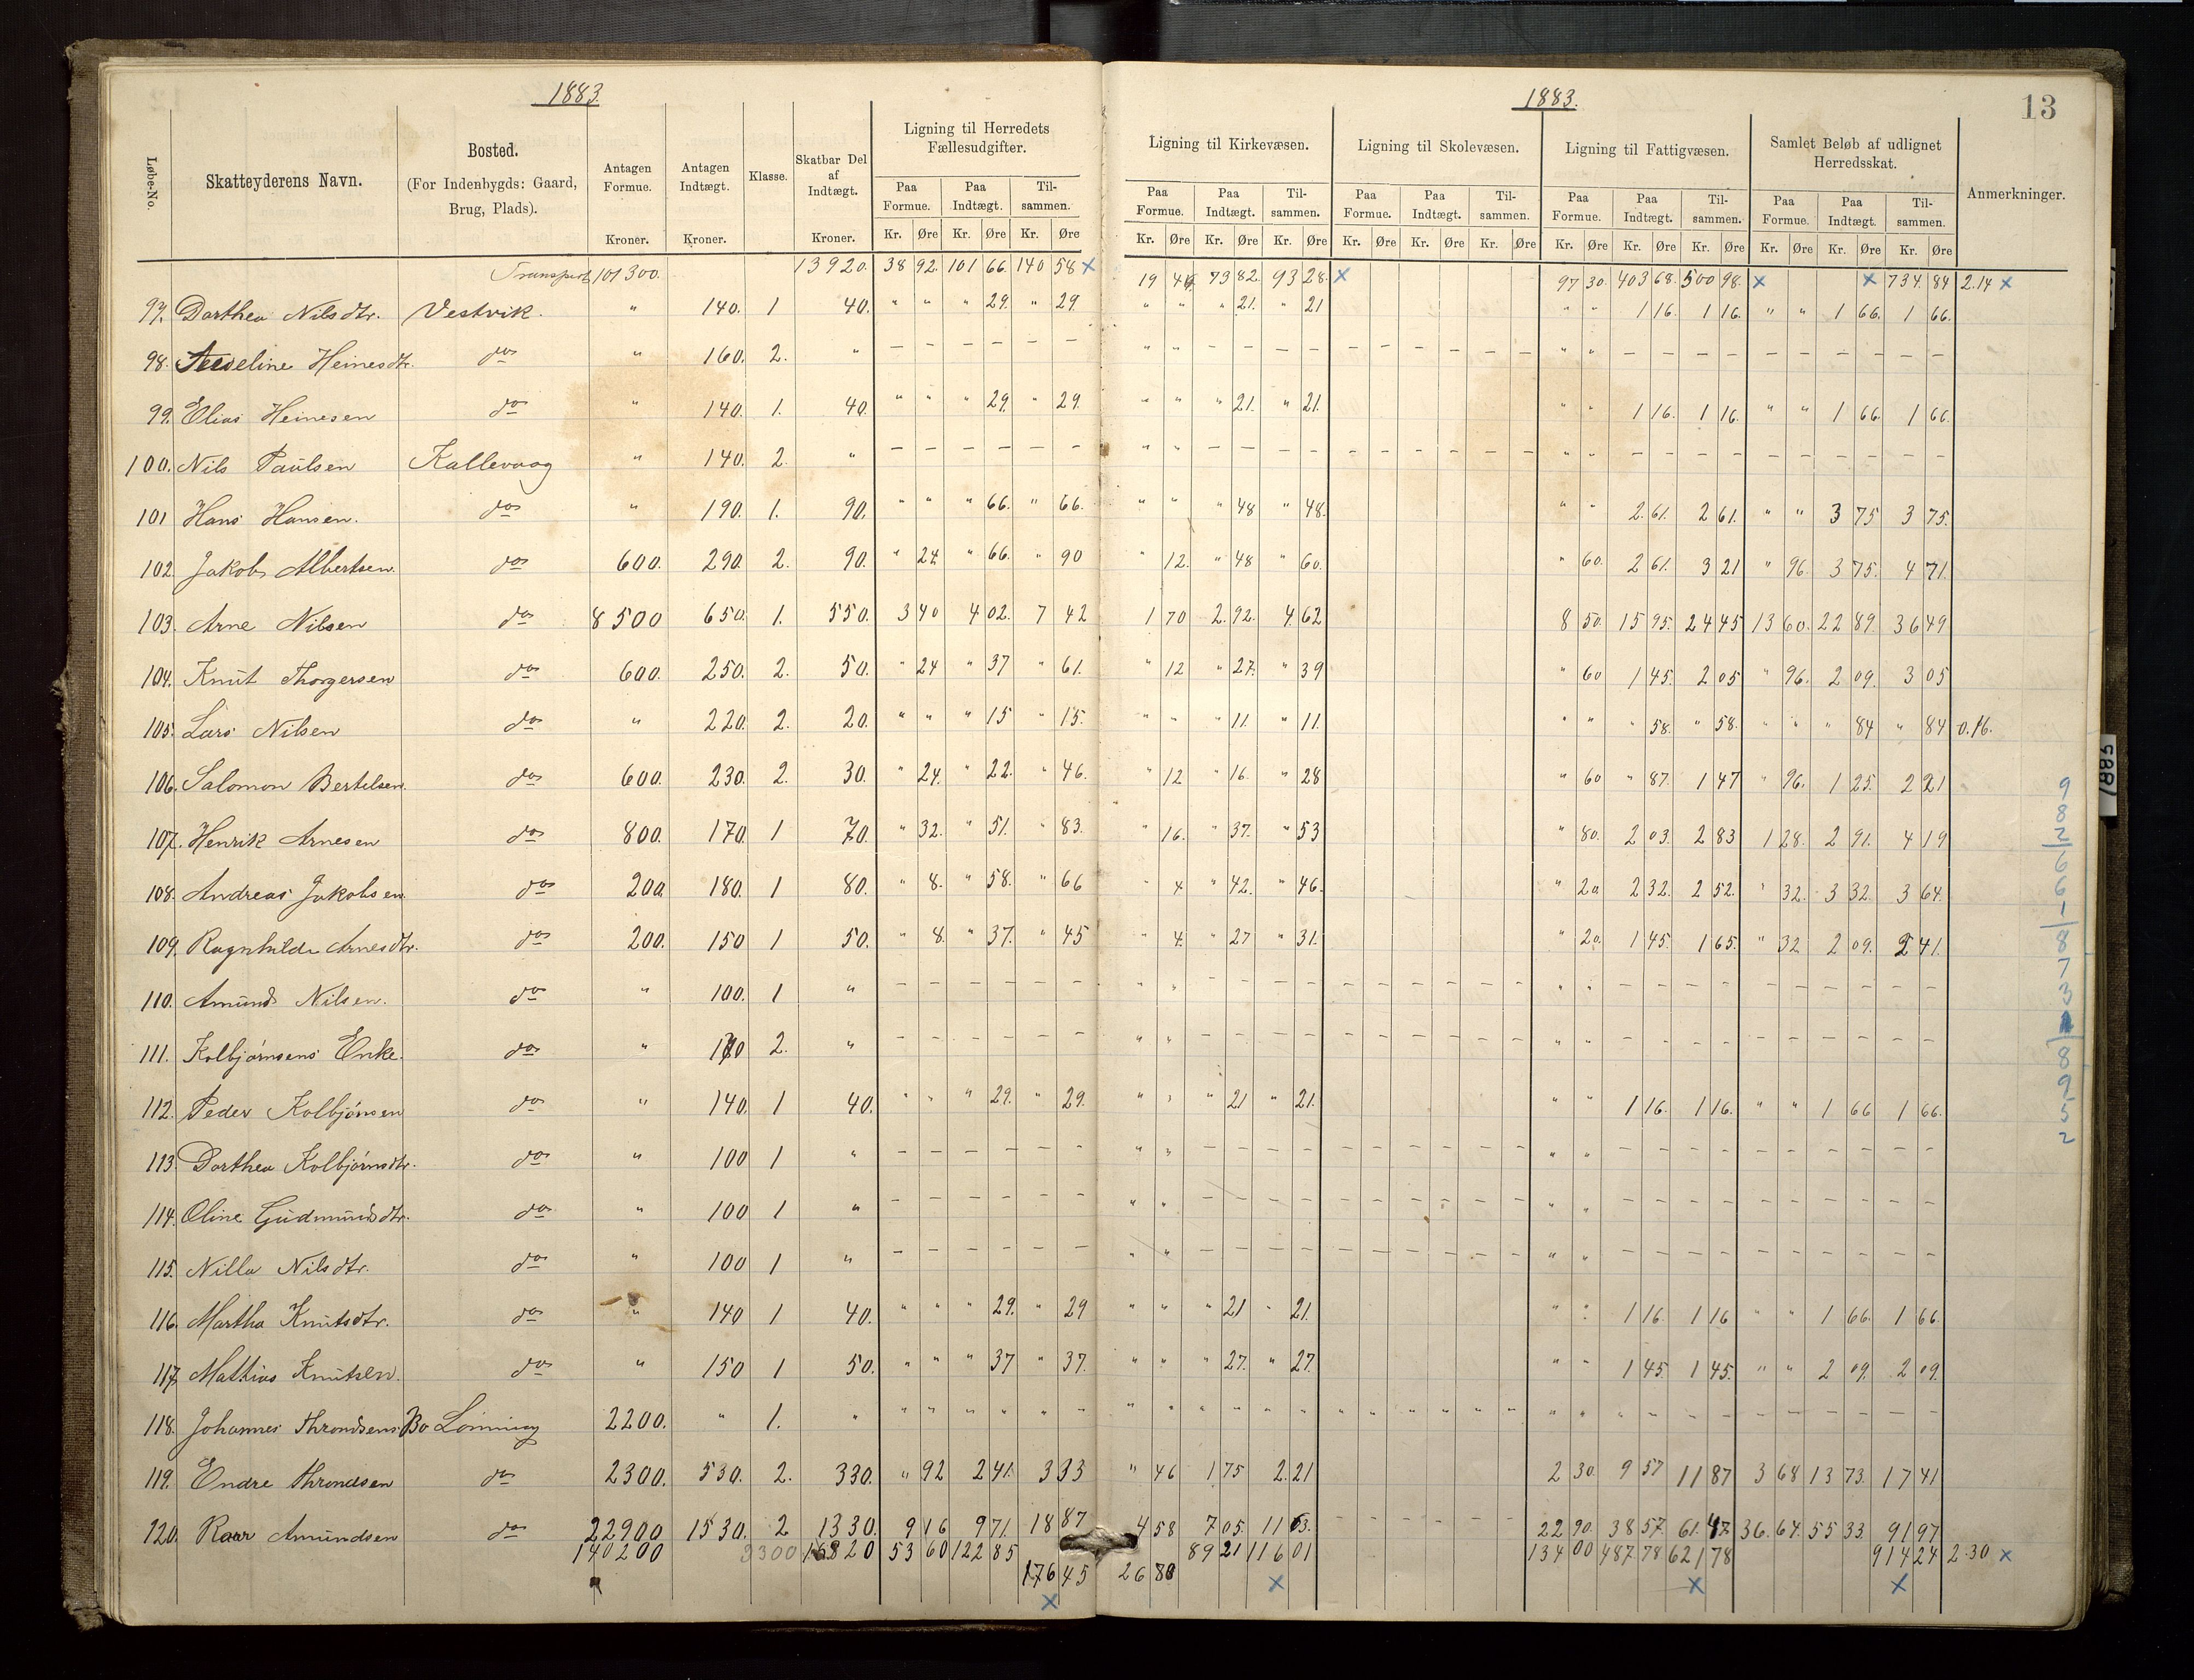 1883.
1883.
13
Løbe-No.
Skatteyderens Navn.
Bosted.
(For Indenbygds: Gaard, Brug, Plads).
Antagen Formue.
Kroner.
Antagen Indtægt.
Kroner.
Klasse.
Skatbar Del af Indtægt.
Kroner.
Ligning til Herredets Fællesudgifter.
Ligning til Kirkevæsen.
Ligning til Skolevæsen.
Ligning til Fattigvæsen.
Samlet Beløb af udlignet Herredsskat.
Anmerkninger.
Paa Formue. Paa Indtægt. Til-sammen. Paa Formue. Paa Indtægt. Til-sammen. Paa Formue. Paa Indtægt. Til-sammen. Paa Formue. Paa Indtægt. Til-sammen. Paa Formue. Paa Indtægt. Til-sammen.
Kr. Øre Kr. Øre Kr. Øre Kr. Øre Kr. Øre Kr. Øre Kr. Øre Kr. Øre Kr. Øre Kr. Øre Kr. Øre Kr. Øre Kr. Øre Kr. Øre Kr. Øre
Transport 101300. 13920. 38 92. 101 66. 140 58 x 19 73 82. 93 28. x 97 30. 403 68. 500 98. x x 734. 84 2.14 x
97. Dorthea Nilsdtr. Vestvik. " 140. 1 40. " " " 29. " 29 " " " 21. " 21 " " 1 16. 1 16. " " 1 66. 1 66.
98. Heinesdtr. do " 160. 2. " — — — — — — " " — — — — — — — — — — " " — — — — — — — — — —
99. Elias Heinesen do " 140. 1. 40. " " " 29. " 29. " " " 21. " 21. " " 1 16. 1 16. " " 1 66. 1 66.
100. Nils Paulsen Kallevaag " 140. 2. " — — — — — — " " — — — — — — — — — — " " — — — — — — — — — —
101 Hans Hansen. do " 190. 1. 90. " " " 66. " 66. " " " 48 " 48. " " 2. 61. 2 61. " " 3 75 3 75.
102. Jakob Albertsen. do 600. 290. 2. 90. " 24 " 66. " 90 " 12. " 48 " 60. " 60. 2 61. 3 21 " 96. 3 75. 4 71.
103. Arne Nilsen do 8500 650. 1. 550. 3 40 4 02. 7 42 1 70 2. 92. 4. 62 8 50. 15 95. 24 45 13 60. 22 89. 36 49
104. Knut Thorgersen do 600. 250. 2. 50. " 24 " 37 " 61. " 12 " 27. " 39 " 60 1 45. 2 05 " 96. 2 09. 3 05
105. Lars Nilsen do " 220. 2. 20. " " " 15 " 15. " " " 11. " 11. " " " 58. " 58. " " " 84 " 84 0.16.
106. Salomon Bertelsen. do 600. 230. 2. 30. " 24. " 22. " 46. " 12 " 16. " 28 " 60 " 87. 1 47 " 96. 1 25. 2 21
107. Henrik Arnesen do 800. 170. 1 70. " 32. " 51. " 83. " 16. " 37. " 53 " 80. 2 03. 2 83 1 28. 2 91. 4 19
108. Andreas Jakobsen. do 200. 180. 1 80. " 8. " 58. " 66 " 4 " 42. " 46. " 20 2 32. 2 52. " 32. 3 32. 3 64.
109. Ragnhilde Arnesdtr. do 200. 150 1 50. " 8. " 37. " 45 " 4. " 27 " 31. " 20. 1 45. 1 65. " 32 2 09. 2 41.
110. Amund Nilsen. do " 100. 1 " — — — — — — " " — — — — — — — — — — " " — — — — — — — — — —
111. Kolbjørnsens Enke. do " 2. " — — — — — — " " — — — — — — — — — — " " — — — — — — — — — —
112. Peder Kolbjønsen do " 140. 1 40. " " " 29. " 29. " " " 21 " 21. " " 1 16. 1 16. " " 1 66 1 66.
113. Dorthea Kolbjørnsdtr. do " 100 1 " — — — — — — " " — — — — — — — — — — " " — — — — — — — — — —
114. Oline Gudmundsdtr. do " 100 1 " — — — — — — " " — — — — — — — — — — " " — — — — — — — — — —
115. Nilla Nilsdtr. do " 100 1 " — — — — — — " " — — — — — — — — — — " " — — — — — — — — — —
116. Martha Knutsdtr. do " 140 1 40. " " " 29. " 29 " " " 21 " 21. " " 1 16. 1 16 " " 1 66. 1 66.
117. Mathias Knutsen. do " 150 1 50. " " " 37 " 37. " " " 27. " 27. " " 1 45. 1 45. " " 2 09. 2 09.
118. Johannes Throndsens Bo Lønning 2200. " 1. " " " " " " " " " " " " " " " " " " " " " — — — — — — — — — —
119. Endre Throndsen do 2300. 530. 2. 330. " 92 2 41. 3 33 " 46 1 75 2. 21 2 30. 9 57 11 87 3 68 13 73. 17 41
120. Roar Amundsen do 22900 1530. 2 1330. 9 16 9 71. 18 87 4 58 7 05. 11 63. — — — — — — 22 90. 38 57. 61. 47. 36. 64. 55 33. 91 97
140200 3300 16820 53 60 122 85 89 21 116 01 134 00 487 78 621 78 914 24 2.30 x
176 45 26 80 x x x
x
9 8 2 6 6 1 8 7 3 8 9 5 2
1885